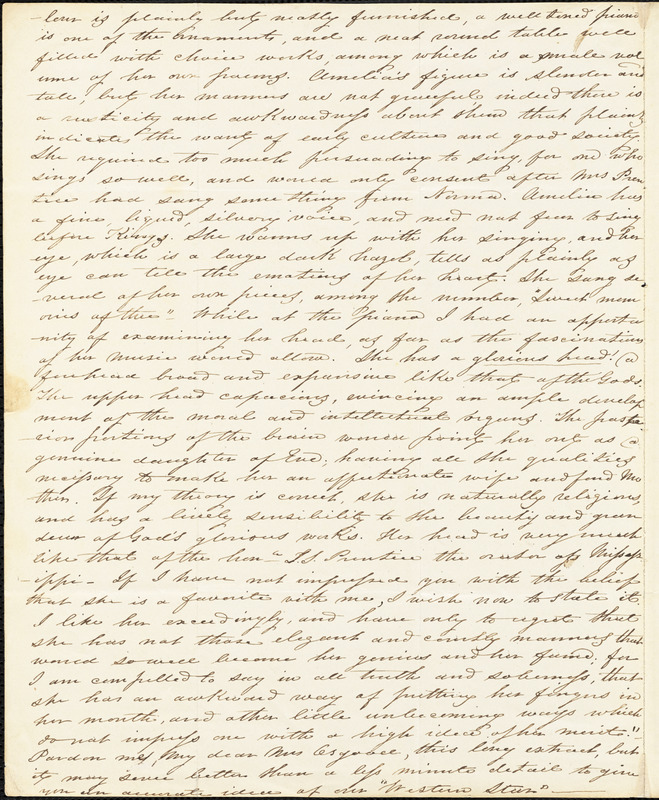 -lour is plainly but neatly furnished, a well tuned piano
is one of the ornaments, and a neat round table well
filled with choice works, among which is a small vol
ume of her own poems. Amelia's figure is slender and
tall, but her manners are not graceful indeed there is
a rusticity and awkwardness about them that plainly
indicates the want of early culture and good society.
She required too much persuading to sing, for one who
sings so well, and would only consent after Mrs Pren
tice had sang something from Norma. Amelia has
a fine, liquid, silvery voice, and need not fear to sing
before Kings. She warms up with her singing, and her
eye, which is a large dark hazel, tells as plainly as
eye can tell the emotions of her heart. She sang se
-veral of her own pieces, among the number, "Sweet mem
ories of thee" While at the piano I had an opportu
nity of examining her head, as far as the fascinations
of her music would allow. She has a glorious head! (a
forehead broad and expansive like that of the Gods.
The upper head capacious, evincing an ample develop
ment of the moral and intellectual organs. The poste
-rior portions of the brain would point her out as (a
genuine daughter of Eve, having all the qualities
necessary to make her an affectionate wife and fond Mo
ther. If my theory is correct, she is naturally religious
and has a lively sensibility to the beauty and gran
deur of God's glorious works. Her head is very much
like that of the hon. S.S. Prentice the orator of Missis
-sippi - If I have not impressed you with the belief
that she is a favorite with me, I wish now to state it
I like her exceedingly, and have only to regret that
she has not those elegant and courtly manners that
would so well become her genius and her fame, for
I am compelled to say in all truth and soberness, that
she has an awkward way of putting her fingers in
her mouth, and other little unbecoming ways which
do not impress one with a high idea of her merit."
Pardon me, My dear Mrs , this long extract, but
it may serve better than a less minute detail to give
you an accurate idea of our "Western Star"